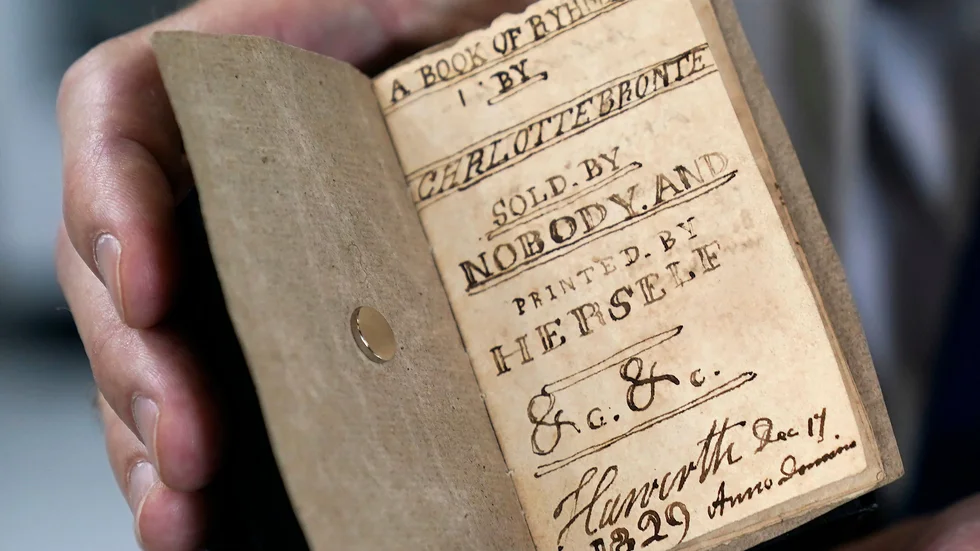 A BOOK OF RYHM
BY
CHRLOTTE BRONTE
SOLD. BY
NOBODY. AND
PRINTED. BY
HERSELF
&c. &c.
Haworth Dec 17
1829 Anno Domini